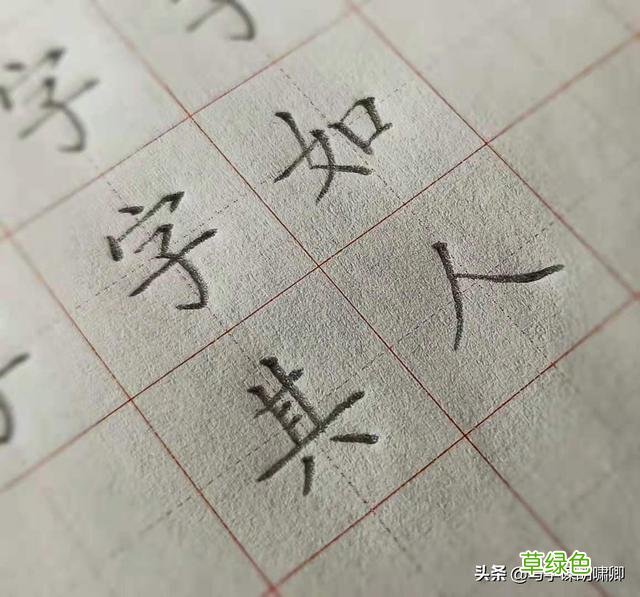 字
字如
其人
草绿色
头条 @写字课胡啸卿